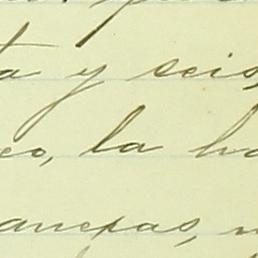 ta y seis,
eo, la ha
anexas,